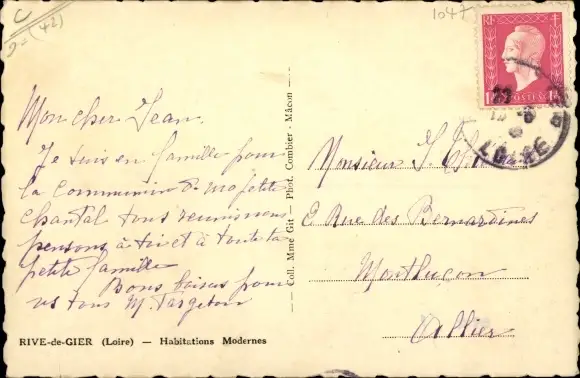 C
(42)
1047
RF
POSTES
LOIRE
Mon cher Jean.
Je suis en famille pour
la communion de ma petite
Chantal tous réunis nous
pensons à toi et à toute ta
petite famille
Bons baisers pour
vs tous M. Targetou
Coll. Mme Git - Phot. Combier - Mâcon
Monsieur J.
Rue des Bernardines
Montluçon
Allier
RIVE-de-GIER (Loire) — Habitations Modernes